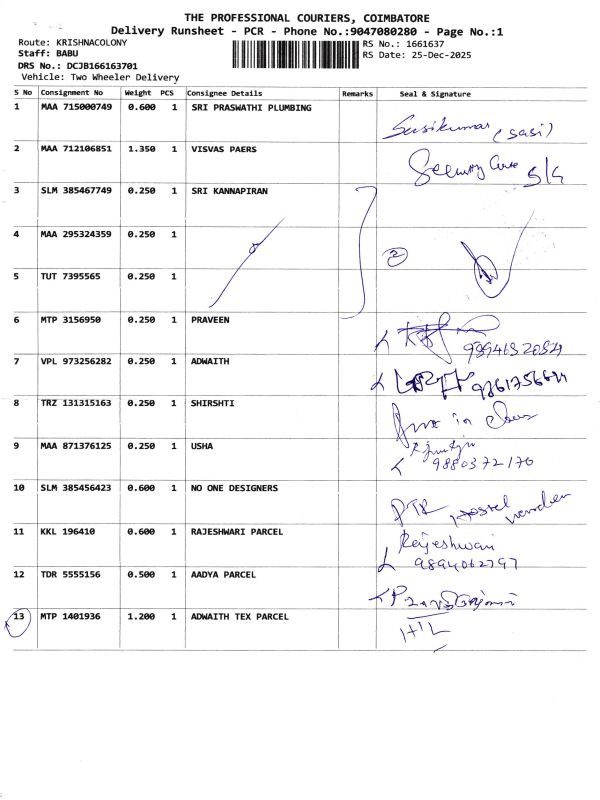 THE PROFESSIONAL COURIERS, COIMBATORE
Delivery Runsheet - PCR - Phone No.:9047080280 - Page No.:1
Route: KRISHNACOLONY
Staff: BABU
DRS No.: DCJB166163701
Vehicle: Two Wheeler Delivery
RS No.: 1661637
RS Date: 25-Dec-2025
S No Consignment No Weight PCS Consignee Details Remarks Seal & Signature
1 MAA 715000749 0.600 1 SRI PRASWATHI PLUMBING Sasikumar (sasi)
2 MAA 712106851 1.350 1 VISVAS PAERS Security S/G
3 SLM 385467749 0.250 1 SRI KANNAPIRAN
4 MAA 295324359 0.250 1 2
5 TUT 7395565 0.250 1
6 MTP 3156950 0.250 1 PRAVEEN
7 VPL 973256282 0.250 1 ADWAITH
8 TRZ 131315163 0.250 1 SHIRSHTI in
9 MAA 871376125 0.250 1 USHA
9880372170
10 SLM 385456423 0.600 1 NO ONE DESIGNERS Hostel warden
11 KKL 196410 0.600 1 RAJESHWARI PARCEL Rajeshwari
9894062797
12 TDR 5555156 0.500 1 AADYA PARCEL
13 MTP 1401936 1.200 1 ADWAITH TEX PARCEL